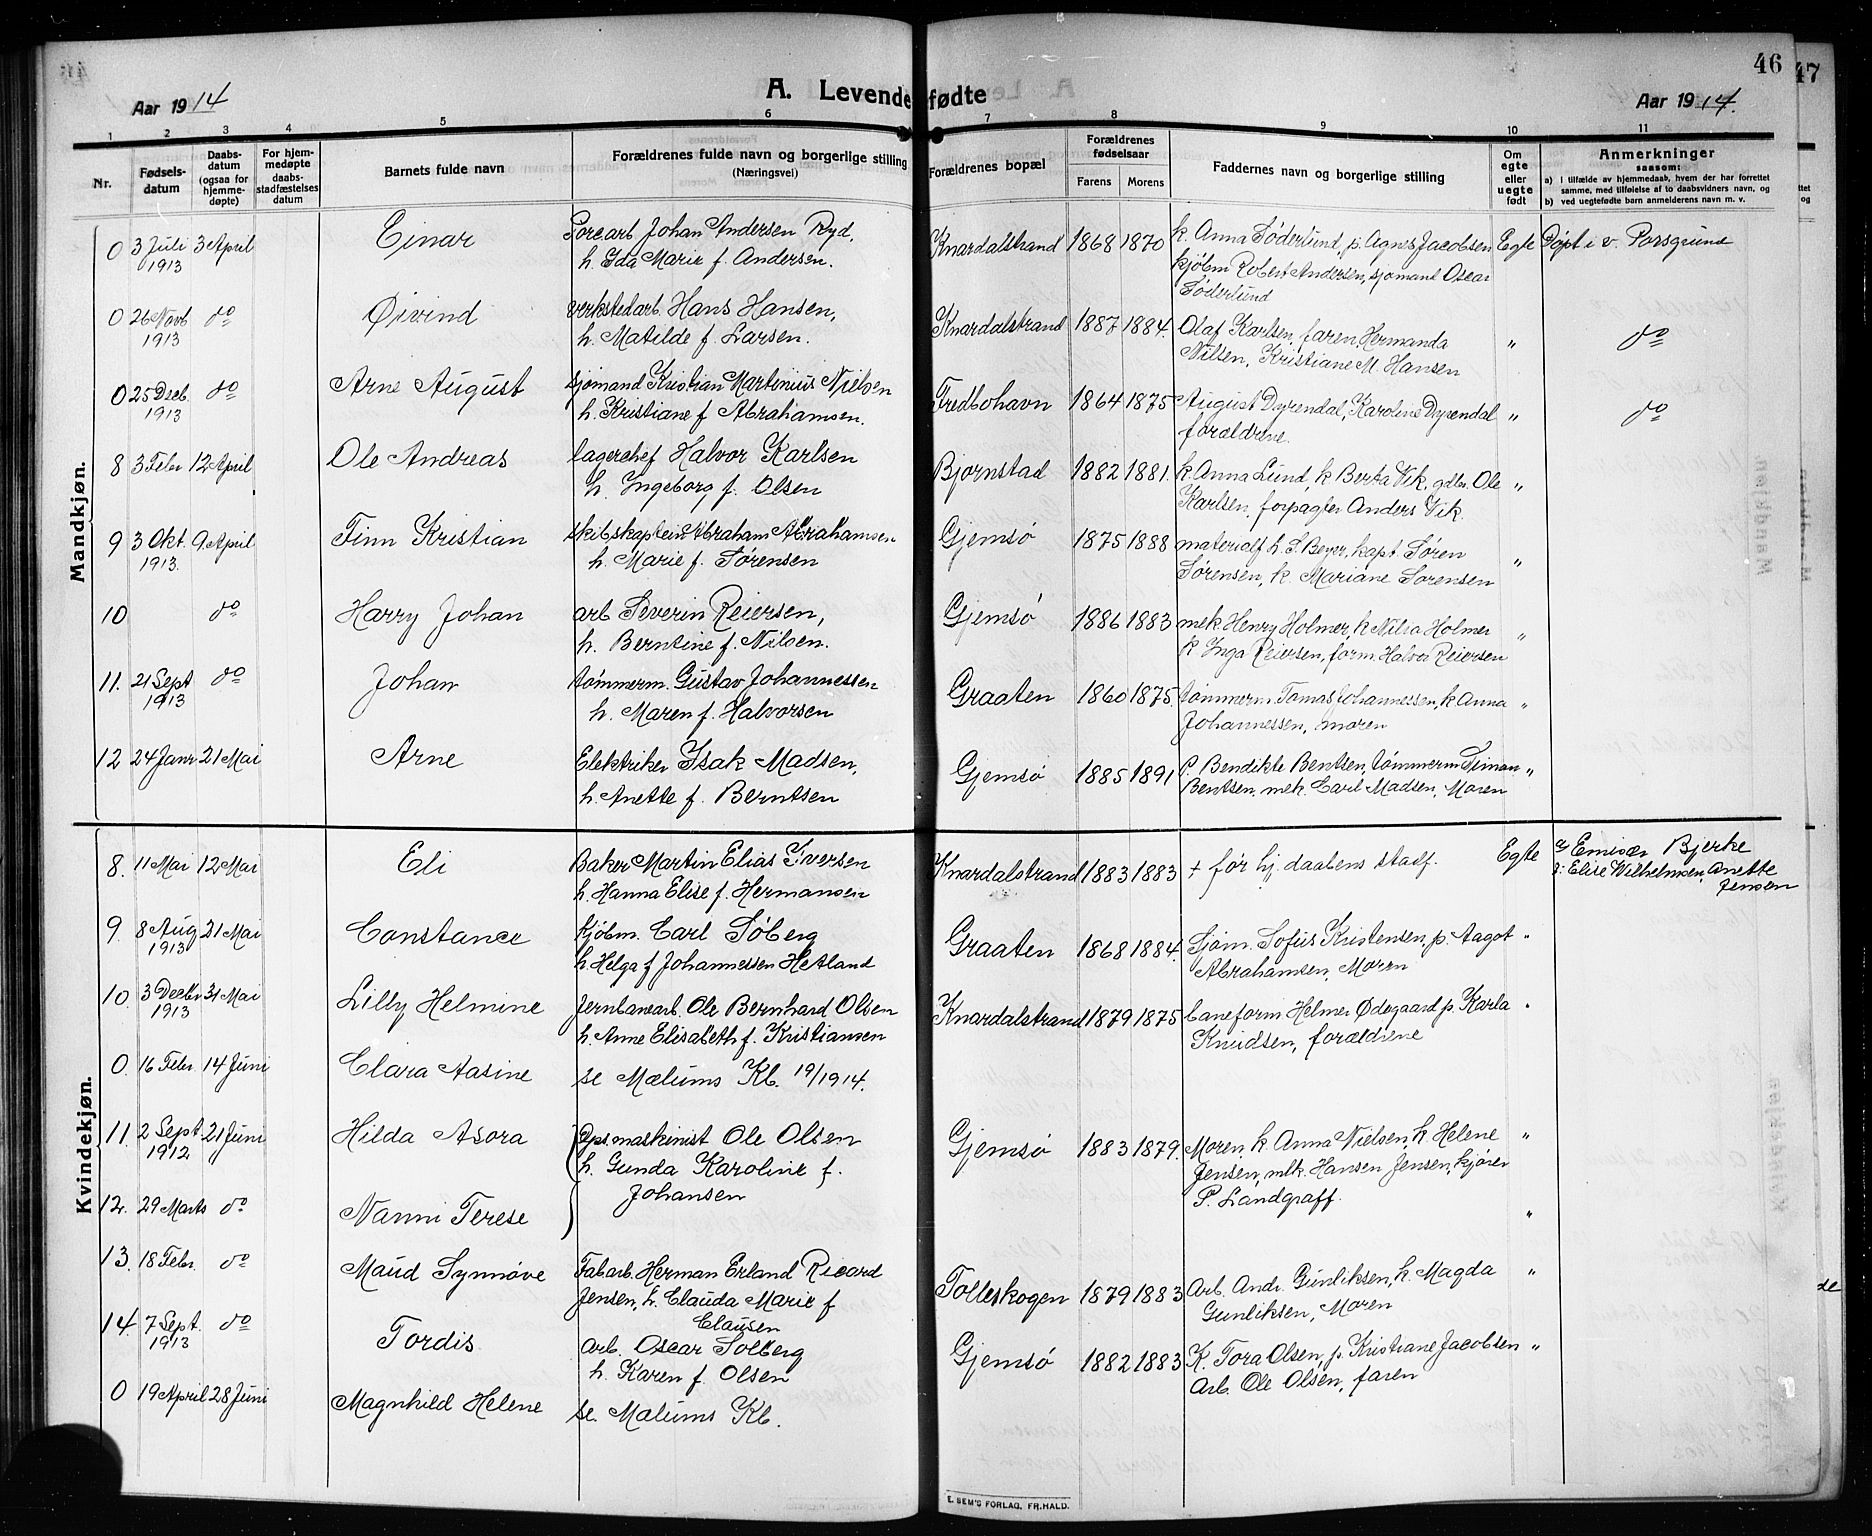 46
47
Aar 1914
A. Levendefødte
Aar 1914.
1 2 3 4 5 6 7 8 9 10 11
Nr.
Fødsels-
datum
Daabs-
datum
(ogsaa for
hjemme-
døpte)
For hjem-
medøpte
daabs-
stadfæstelses
datum
Barnets fulde navn
Forældrenes fulde navn og borgerlige stilling
(Næringsvei)
Forældrenes bopæl
Forældrenes
fødselsaar
Farens Morens
Faddernes navn og borgerlige stilling
Om
egte
eller
uegte
født
Anmerkninger
saasom:
a) i tilfælde av hjemmedaab, hvem der har forrettet
samme, med tilføielse af to daabsvidners navn, og
b) ved uegtefødte barn anmelderens navn m. v.
Mandkjøn.
0 3 Juli 3 April Einar Sorearb Johan Andersen Ryd, Knardalstrand 1868 1870 k. Anna Søderlund, p. Agnes Jacobsen Egte Døpt i v. Porsgrund
1913 h. Ida Marie f. Andersen. kjøbm Robert Andersen, sjomand Oscar
Søderlund
0 26 Novb do Øivind verkstedarb. Hans Hansen, Knardalstrand 1887 1884. Olaf Karlsen, faren, Hermanda " do
1913 h. Matilde f. Larsen. Nilsen, Kristiane M. Hansen
0 25 Decb. do Arne August sjømand Kristian Martinius Nielsen Tredbohavn 1864 1875 August Dyrendal, Karoline Dyrendal " do
1913 h. Kristiane f Abrahamsen. forældrene.
8 3 Febr 12 April Ole Andreas lagerchef Halvor Karlsen Bjornstad 1882 1881. k. Anna Lund, k Berta Vik, gdbr. Ole "
h. Ingeborg f. Olsen Karlsen, forpagter Anders Vik.
9 3 Okt. 9 April Finn Kristian skibskaptein Abraham Abrahamsen Gjemsø 1875 1888 materialf h. S. Beyer, kapt. Søren "
1913. h. Marie f. Sørensen Sørensen, k. Mariane Sorensen
10 do Harry Johan arb Severin Reiersen, Gjemsø 1886 1883 mek Henry Holmer, k Nilia Holmer "
h. Berntine f. Nilsen. k Inga Reiersen, form. Halvor Reiersen
11. 21 Sept do Johan tømmerm. Gustav Johannessen Graaten 1860 1875. tømmerm Tomas Johannessen, k Anna "
1913 h. Maren f. Halvorsen Johannessen, moren
12 24 Janr 21 Mai Arne Elektriker Isak Madsen, Gjemsø 1885 1891 p. Bendikte Bentsen, tømmerm Simon "
h. Anette f. Berntsen Bentsen, mek. Carl Madsen, Moren
Kvindekjøn.
8. 11 Mai 12 Mai Eli Baker Martin Elias Iversen Knardalstrand 1883 1883 + før hj. daabens stadf. Egte Emisær Bjerke
h. Hanna Elise f. Hermansen Elise Wilhelmsen, Anette
Jensen
9. 8 Aug 21 Mai Constance Kjøbm. Carl Søberg Graaten 1868 1884. Sjøm. Sofus Kristensen, p. Aagot "
1913 h. Helga f Johannessen Hetland Abrahamsen, Moren
10. 3 Decbr 31 Mai Lilly Helmine Jernbanearb. Ole Bernhard Olsen Knardalstrand 1879 1875 baneform Helmer Ødegaard p. Karla "
1913 h. Anne Elisabeth f. Kristiansen Knudsen, forældrene
0. 16 Febr. 14 Juni Clara Aasine se Mælums Kb. 19/1914.
11. 2 Sept 21 Juni Hilda Asora Ops.maskinist Ole Olsen Gjemsø 1883 1879. Moren, k. Anna Nielsen, h. Helene "
1912 h. Gunda Karoline f. Jensen, mek. Hansen Jensen, kjører
Johansen P. Landgraff.
12. 29 Marts do Nanni Terese "
13. 18 Febr. do Maud Synnøve Fabarb. Herman Erland Ricard Tolleskogen 1879 1883 Arb. Andr. Gunliksen, h. Magda "
Jensen, h. Clauda Marie f Gunliksen, Moren
Clausen
14. 7 Sept. do Tordis arb. Oscar Solberg Gjemsø 1882 1883 K. Tora Olsen, p. Kristiane Jacobsen "
1913 h. Karen f. Olsen Arb. Ole Olsen, faren
0 19 April 28 Juni Magnhild Helene se. Mælums Kb.
E. SEM'S FORLAG, FR.HALD.